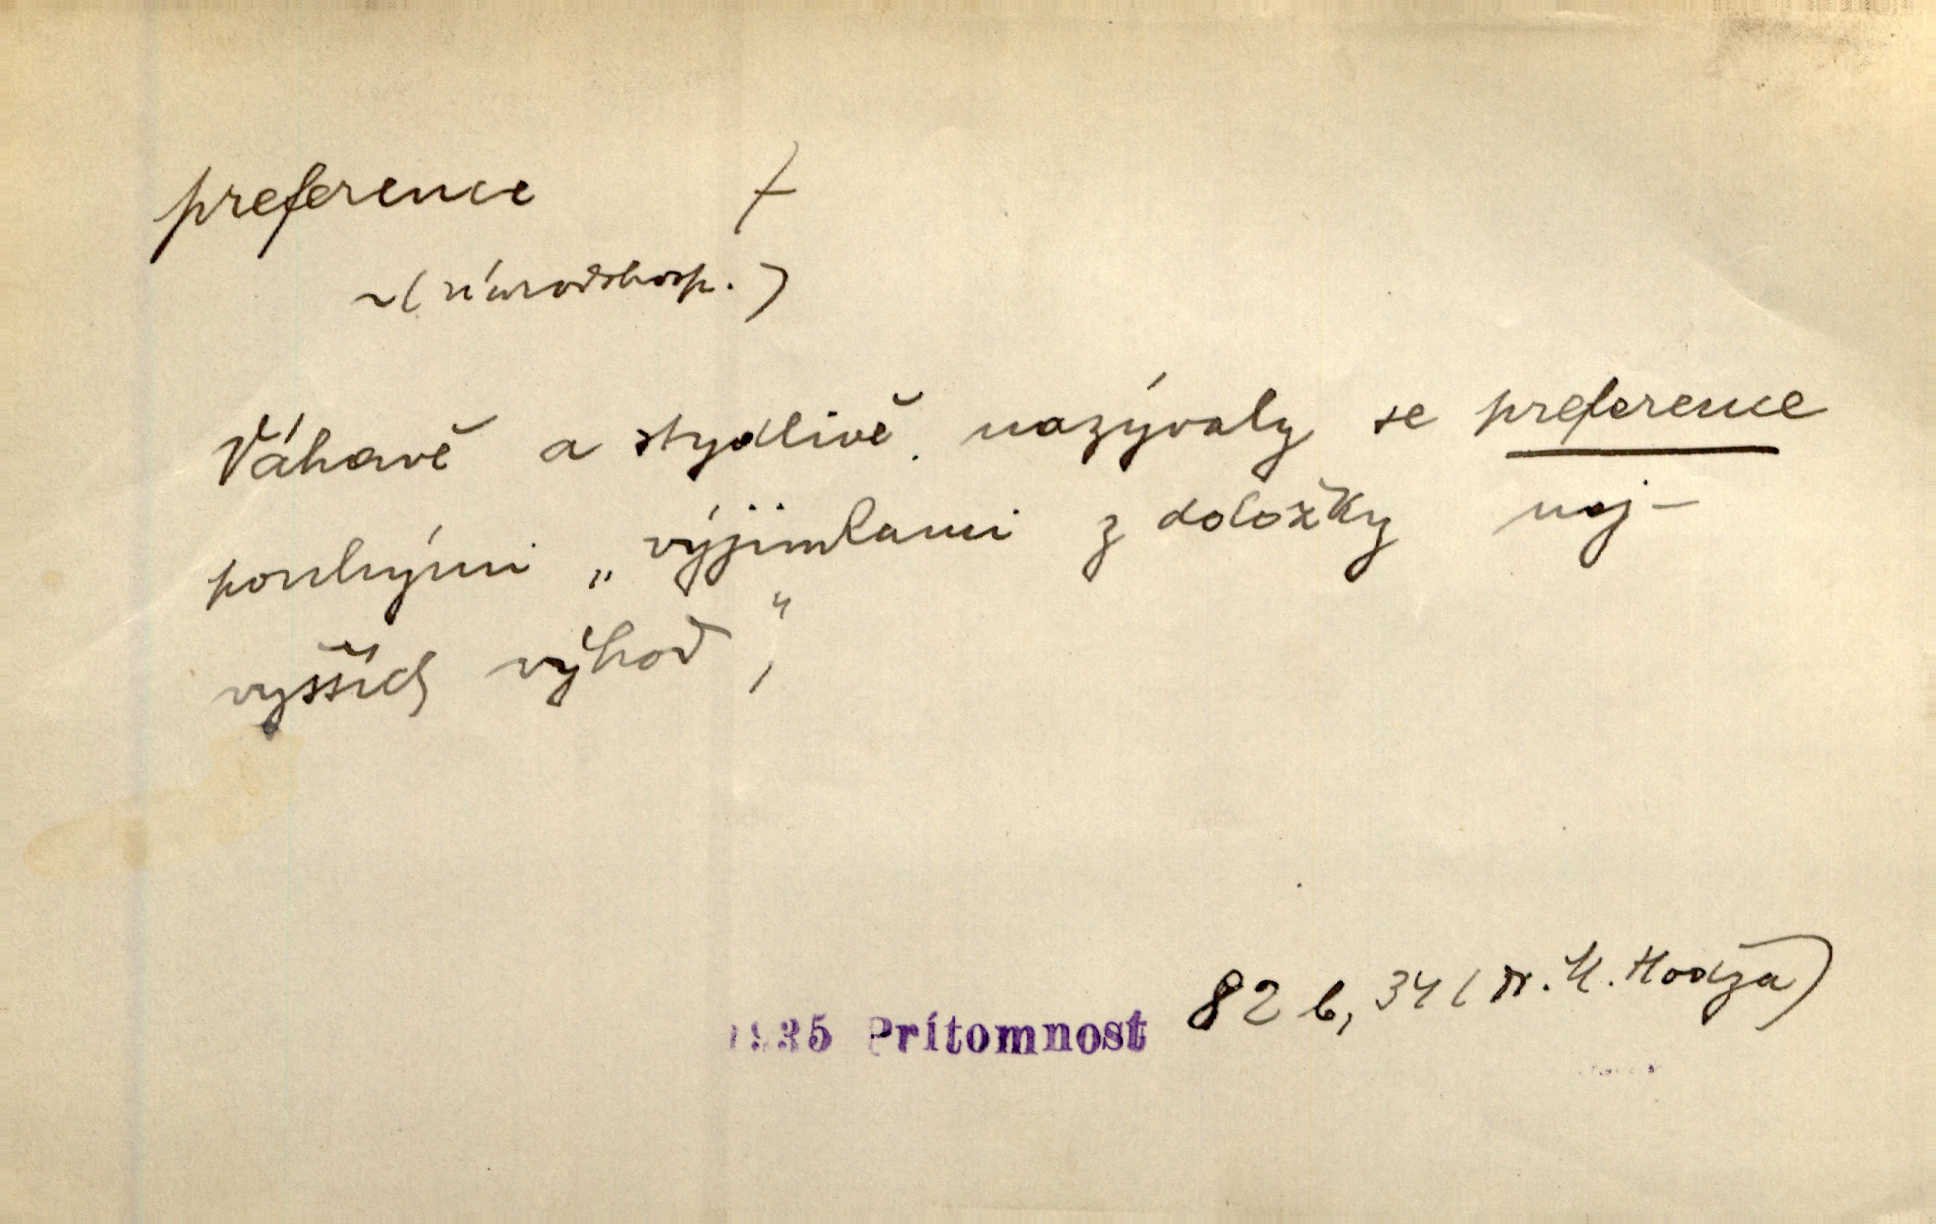 preference f
~(národohosp.)
Váhavě a stydlivě nazývaly se preference
pouhými „výjimkami z doložky nej-
vyšších výhod“,
1935 Prítomnost 82 b, 34 (Dr. M. Hodža)